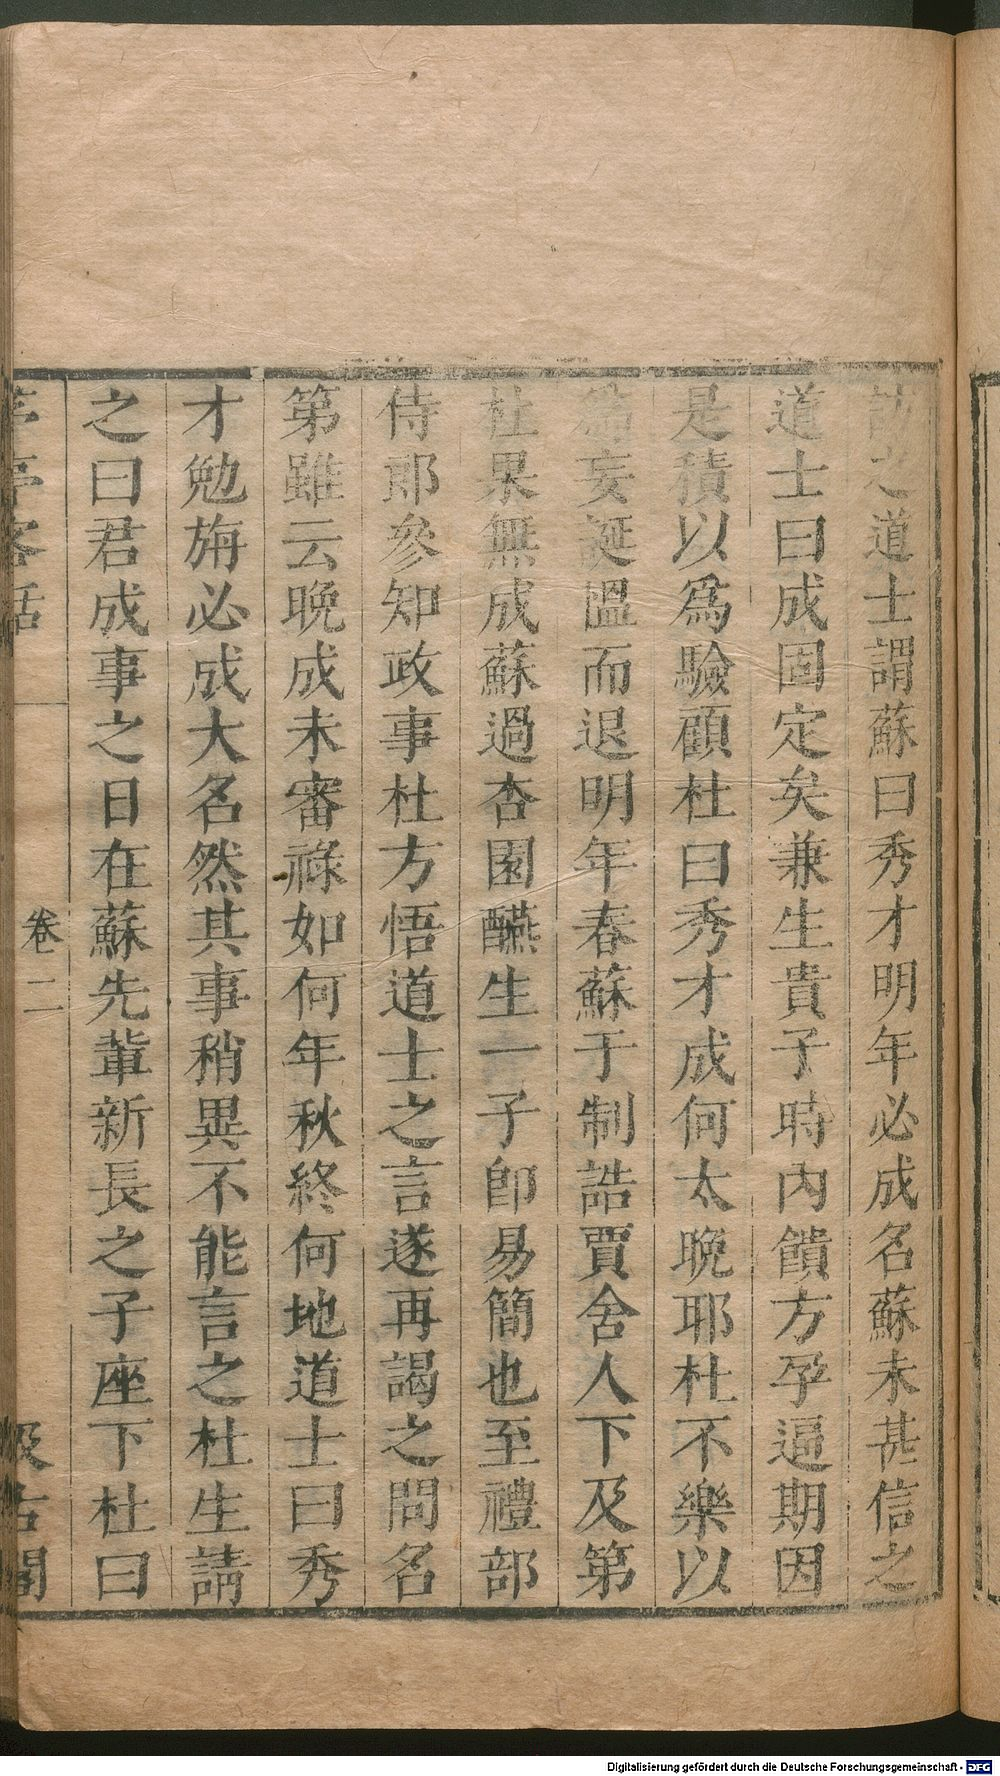 訪之道士謂蘇曰秀才明年必成名蘇未甚信之
道士曰成固定矣兼生貴子時內饋方孕逼期因
是積以爲驗顧杜曰秀才成何太晚耶杜不樂以
爲妄誕慍而退明年春蘇于制誥賈舍人下及第
杜果無成蘇過杏園醼生一子卽易簡也至禮部
侍郎參知政事杜方悟道士之言遂再謁之問名
第雖云晚成未審祿如何年秋終何地道士曰秀
才勉旃必成大名然其事稍異不能言之杜生請
之曰君成事之日在蘇先輩新長之子座下杜曰
茅亭客話
卷二
汲古閣
Digitalisierung gefördert durch die Deutsche Forschungsgemeinschaft - DFG